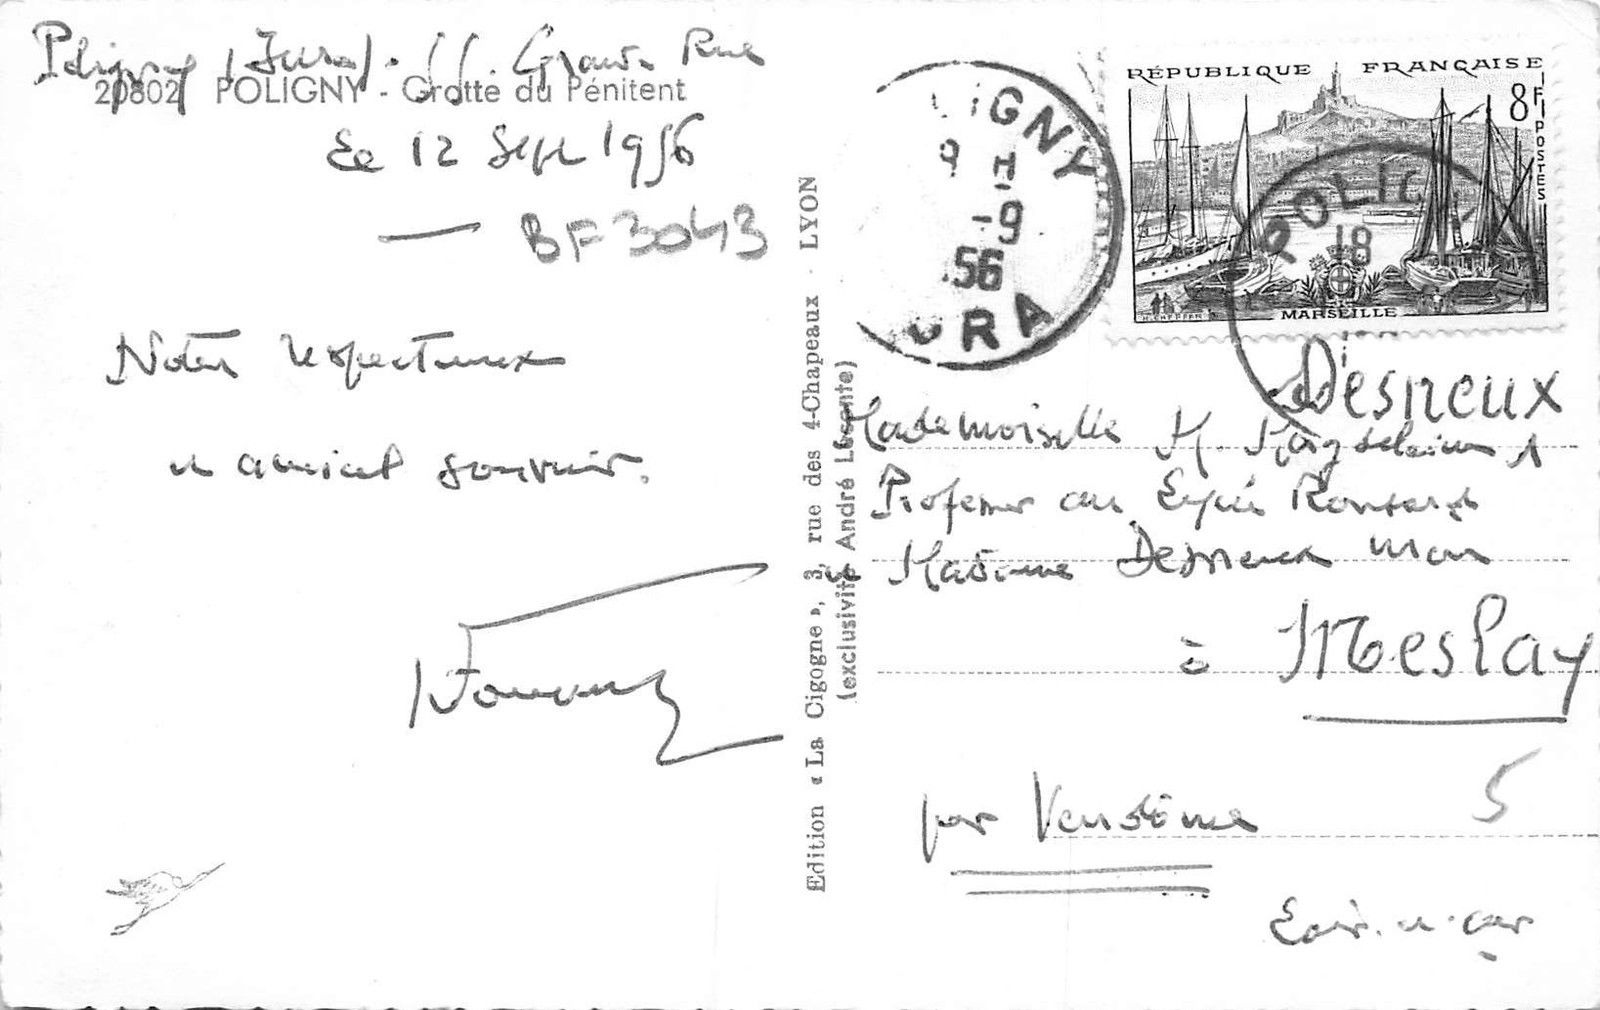 Poligny (Jura). 11. Grande Rue
20802 POLIGNY - Grotte du Pénitent
Le 12 Sept 1956
BF 3043
Notre respectueux
et amical souvenir.
Edition « La Cigogne », 3, rue des 4-Chapeaux - LYON
(exclusivité André Leconte)
IGNY
9 H
-9
56
URA
RÉPUBLIQUE FRANÇAISE
8F
POSTES
MARSEILLE
POLIG
18
Desneux
Mademoiselle M. Magdeleine
Professeur au Lycée Ronsard
Madame Desneux
à Meslay
par Vendôme
5
Loir-et-Cher